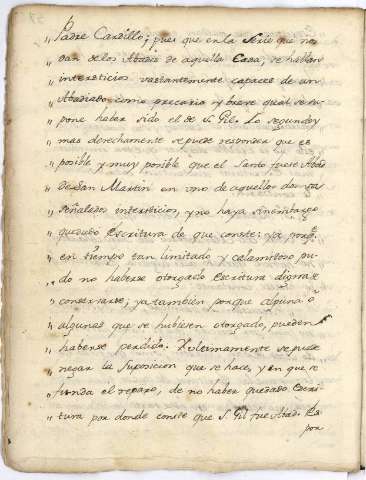 „ Padre Cardillo; pues que en la Serie que nos
„ dan de los Abades de aquella Casa, se hallan
„ intersticios vastantemente capaces de un
„ Abadiado como precario y breve qual se su-
„ pone haber sido el de S. Gil. Lo segundo y
„ mas derechamente se puede responder que es
„ posible y muy posible que el Santo fuese Abad
„ de San Martin en uno de aquellos dos ya
„ señalados intersticios, y no haya sinembargo
„ quedado Escritura de que conste: ya porq.e
„ en tiempo tan limitado y calamitoso pu-
„ do no haberse otorgado Escritura digna de
„ conservarse; ya tambien porque alguna ô
„ algunas que se hubiesen otorgado, pueden
„ haberse perdido. Ultimamente se puede
„ negar la Suposicion que se hace, y en que se
„ funda el reparo, de no haber quedado Escri-
„ tura por donde conste que S. Gil fue Abad. Es
por